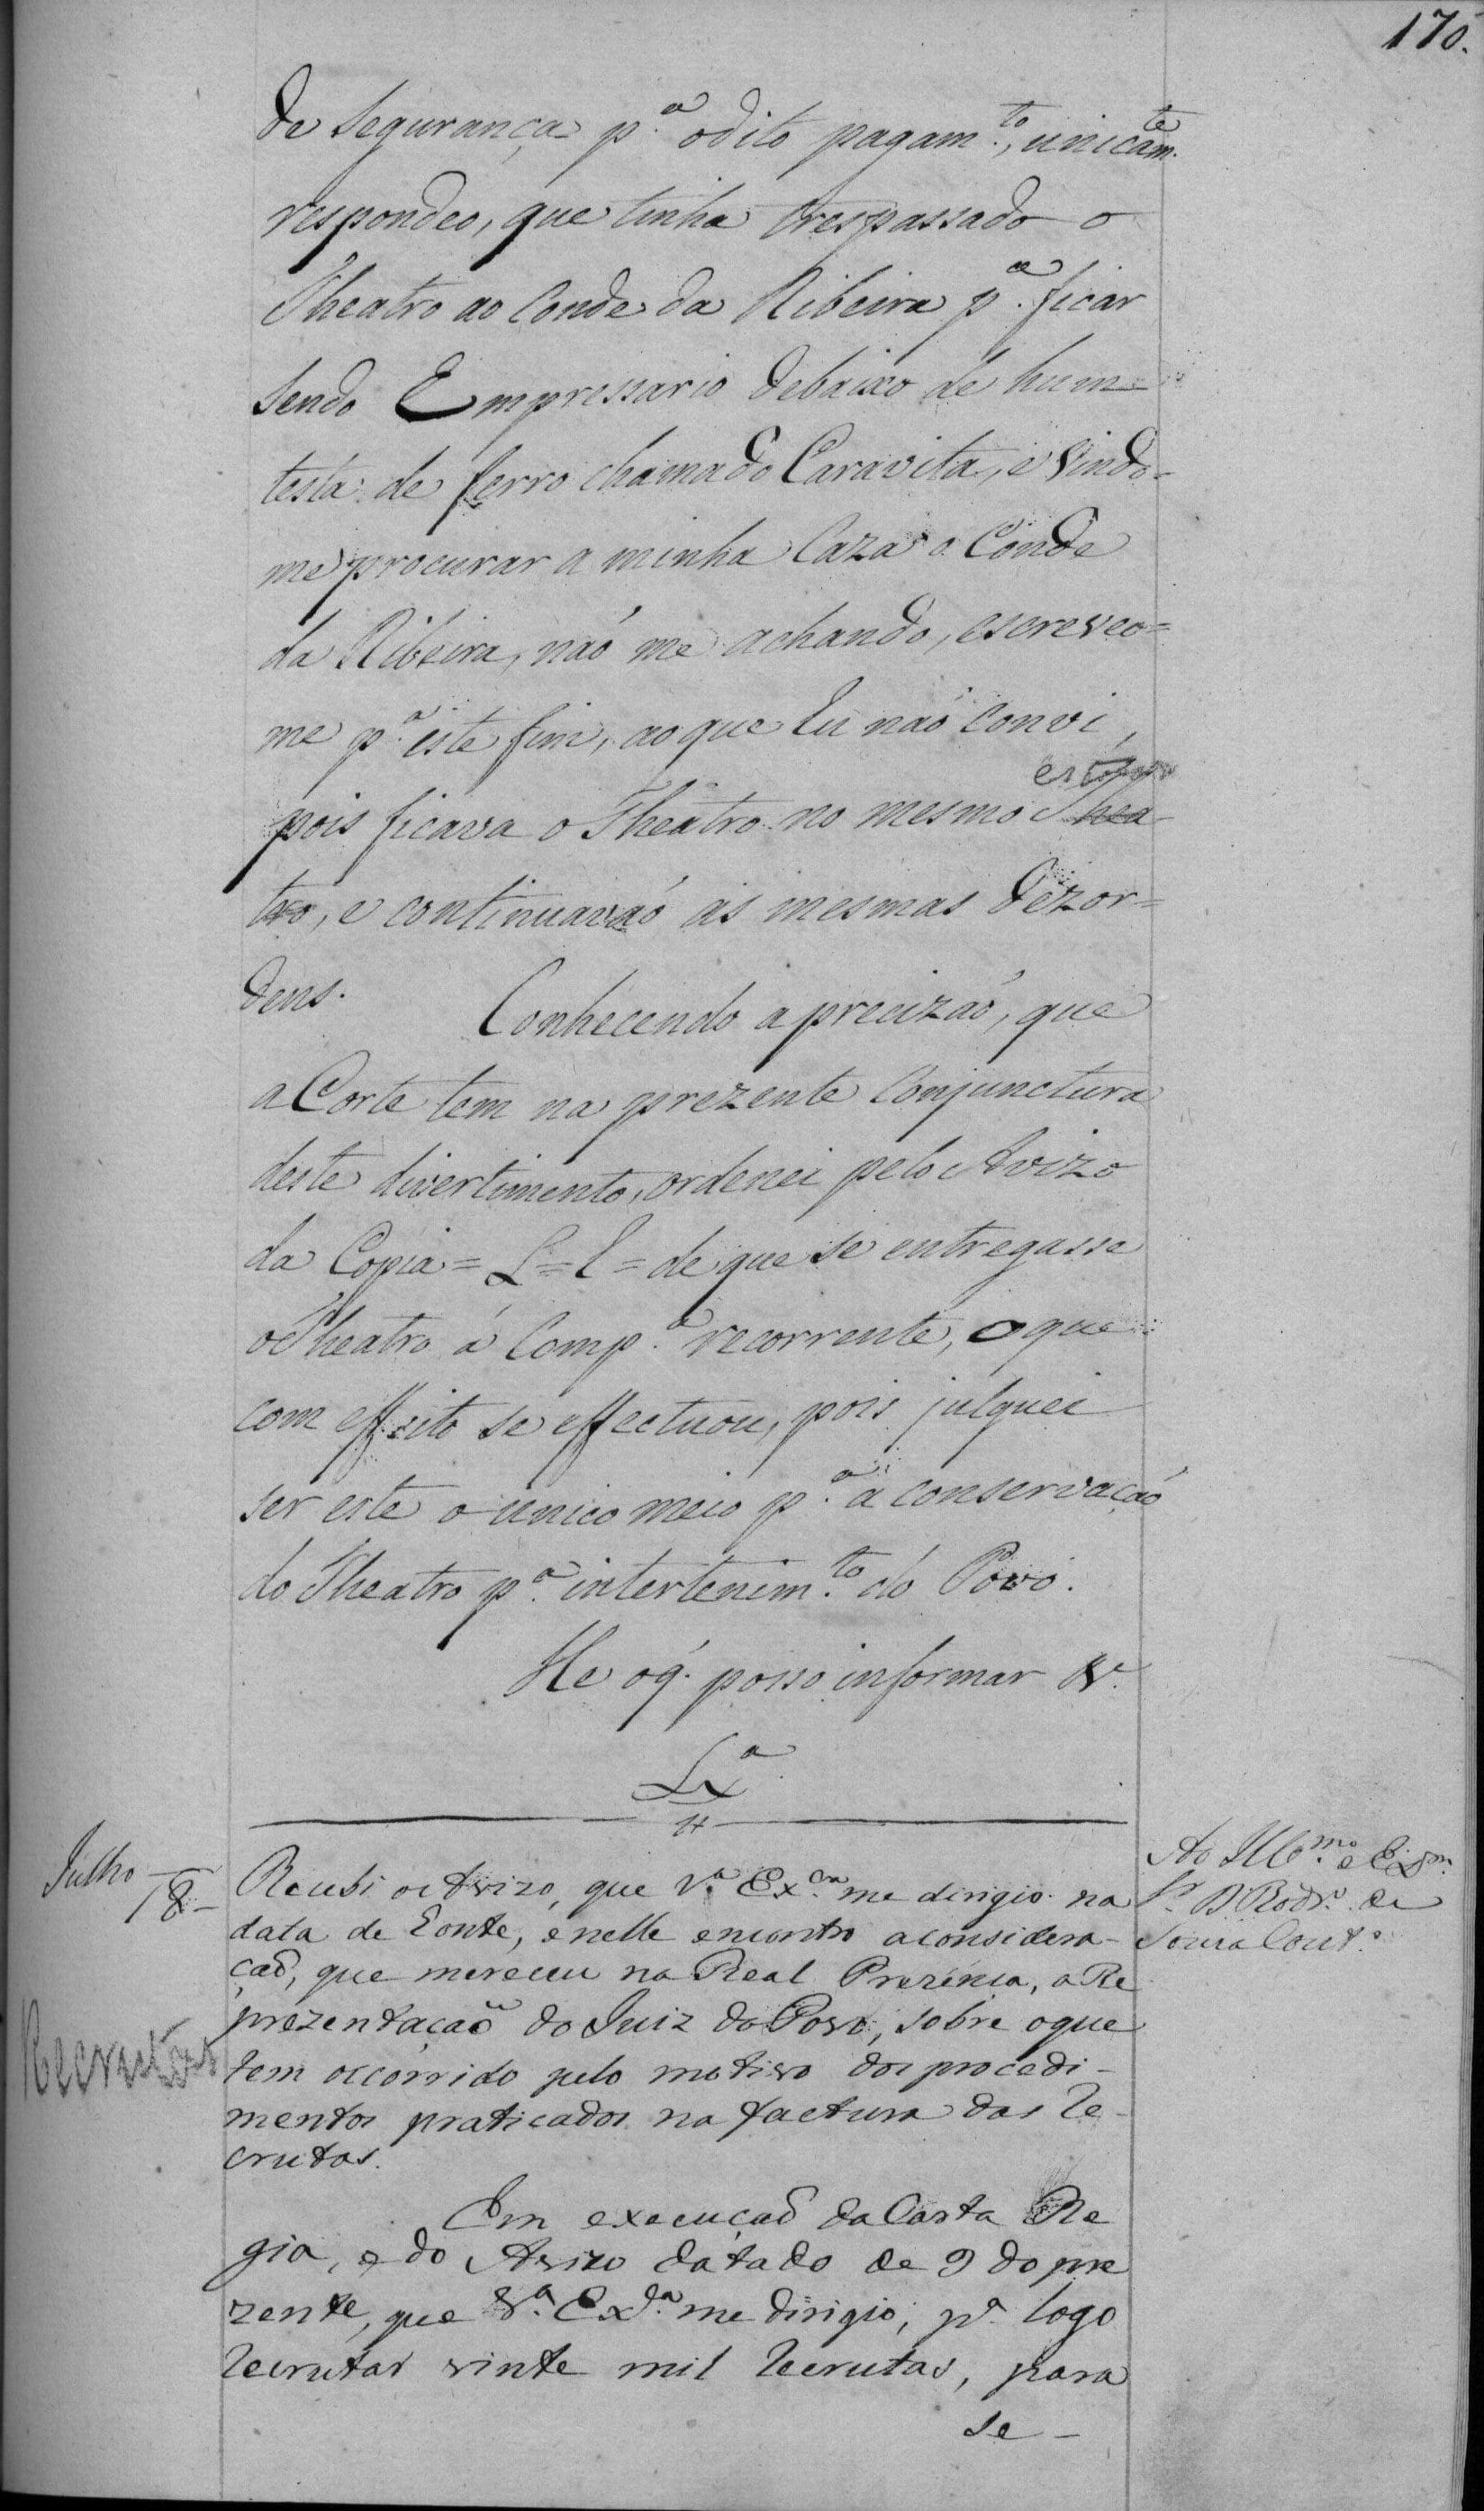 170.
de Segurança p.ª o dito pagam.to, unicam.te
respondeo, que tinha trespassado o
Theatro ao Conde da Ribeira p.ª ficar
sendo Empressario debaixo de hum
testa de ferro chamado Caravita, e vindo-
me procurar a minha Caza o Conde
da Ribeira, naó me achando, escreveo=
me p.ª este fim, ao que Eu naó convi,
pois ficava o Theatro no mesmo Thea-
tro, e continuavaó as mesmas dezor=
dens.
Conhecendo a precizaó, que
a Corte tem na prezente Conjunctura
deste divertimento, ordenei pelo Avizo
da Copia = L = C = de que se entregasse
o Theatro á Comp.ª recorrente, o que
com effeito se effectuou, pois julguei
ser este o unico meio p.ª a conservaçaó
do Theatro p.ª intertenim.to do Povo.
He o q̃. posso informar &.ª
Lx.ª
Julho
18
Ao Ill.mo e Ex.mo
S.r D. Rodr.º de
Souza Cout.º
Recrutas
Recebi o Avizo, que V.ª Ex.cia me dirigio na
data de honte, e nelle encontro a considera-
çaõ, que mereceu na Real Prezença, a Re
prezentaçaõ do Juiz do Povo, sobre o que
tem occorrido pelo motivo dos procedi-
mentos praticados na factura das Re-
crutas.
Em execuçaõ da Carta Re
gia, e do Avizo datado de 9 do pre
zente, que V.ª Ex.cia me dirigio, p.ª logo
recrutar vinte mil recrutas, para
se-